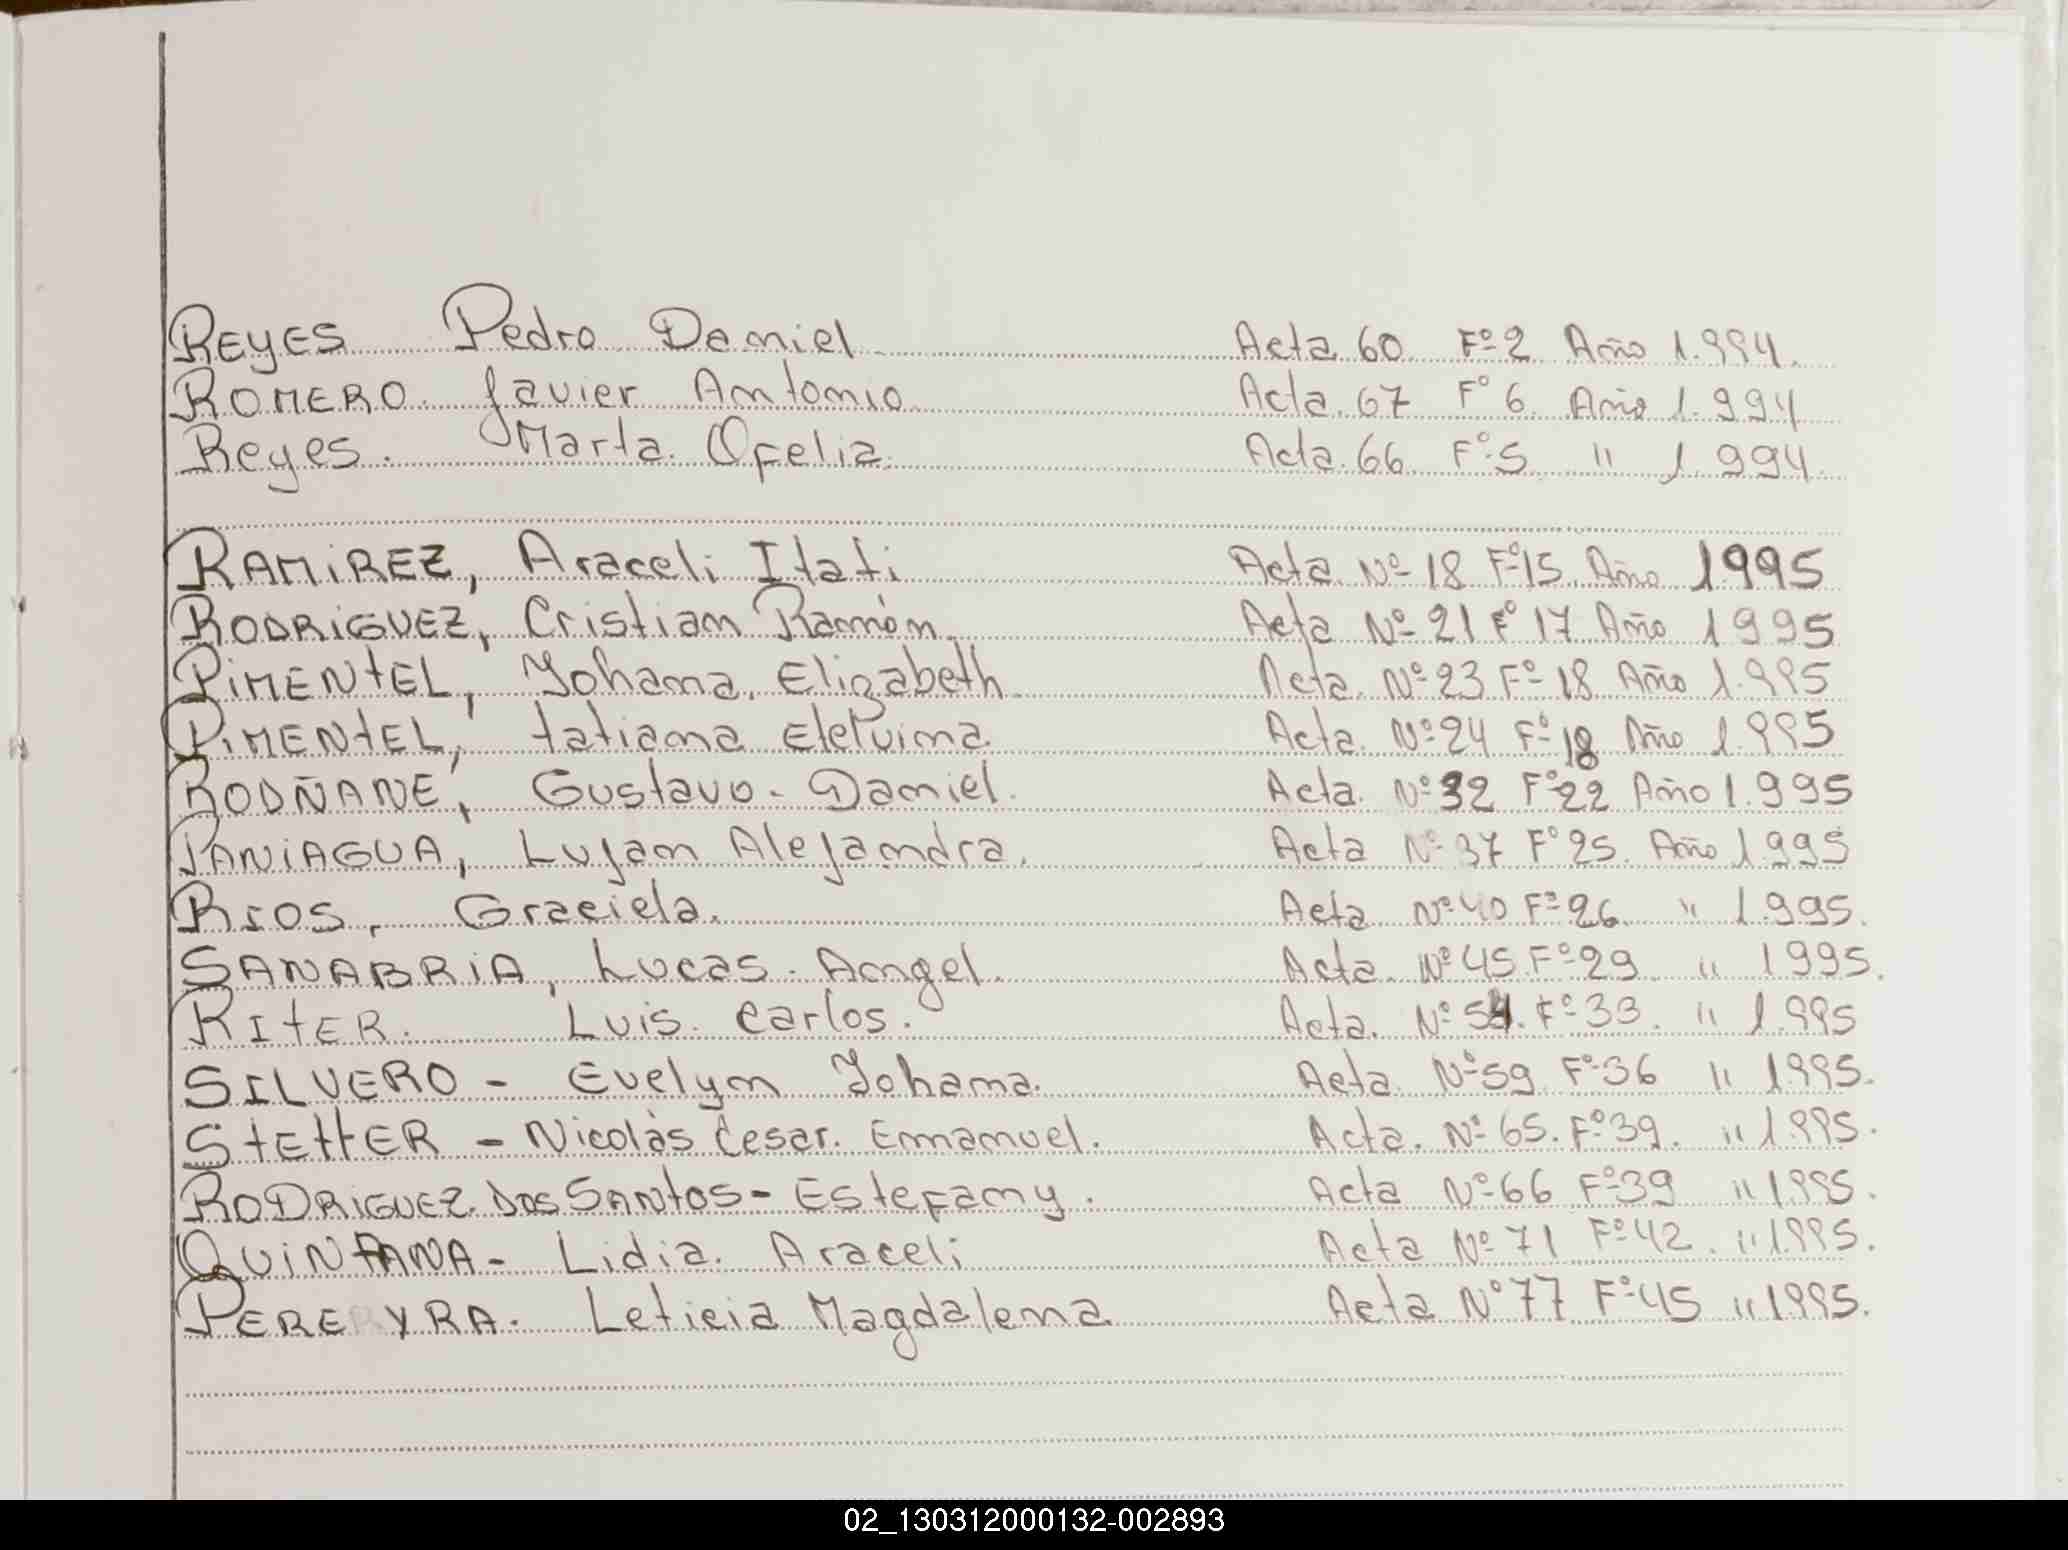 REYES Pedro Daniel Acta 60 Fº 2 Año 1.994.
ROMERO. Javier Antonio Acta. 67 Fº 6. Año 1.994
Reyes. Marta. Ofelia. Acta. 66 Fº 5 " 1.994.
RAMiREZ, Araceli Itati Acta Nº 18 Fº 15. Año 1995
RODRiGUEZ, Cristian Ramón. Acta Nº 21 Fº 17 Año 1995
PiMENtEL, Yohana. Elizabeth Acta. Nº 23 Fº 18 Año 1.995
PiMENtEL, tatiana Acta. Nº 24 Fº 18 Año 1.995
RODÑANE, Gustavo. Daniel. Acta. Nº 32 Fº 22 Año 1.995
PANiAGUA, Lujan Alejandra. Acta Nº 37 Fº 25. Año 1995
RIOS, Graciela. Acta Nº 40 Fº 26 " 1.995.
SANABRiA, Lucas. Angel. Acta. Nº 45 Fº 29 " 1995.
RItER. Luis. Carlos. Acta. Nº 54. Fº 33. " 1.995
SILVERO - Evelyn Yohana. Acta. Nº 59 Fº 36 " 1995.
StEttER - Nicolàs Cesar. Emmanuel. Acta. Nº 65. Fº 39. " 1.995.
RODRiGUEZ. DOS SANtOS - Estefany. Acta Nº 66 Fº 39 " 1995.
QUiNtANA - Lidia. Araceli Acta Nº 71 Fº 42. " 1.995.
PEREYRA. Leticia Magdalena Acta Nº 77 Fº 45 " 1995.
02_130312000132-002893